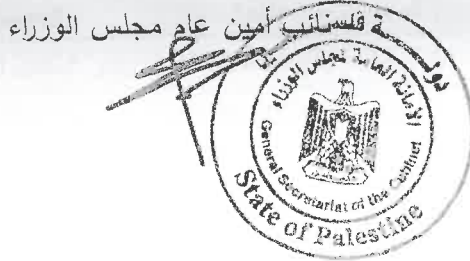 نائب أمين عام مجلس الوزراء
دولة فلسطين
الأمانة العامة لمجلس الوزراء
General Secretariat of the Cabinet
State of Palestine